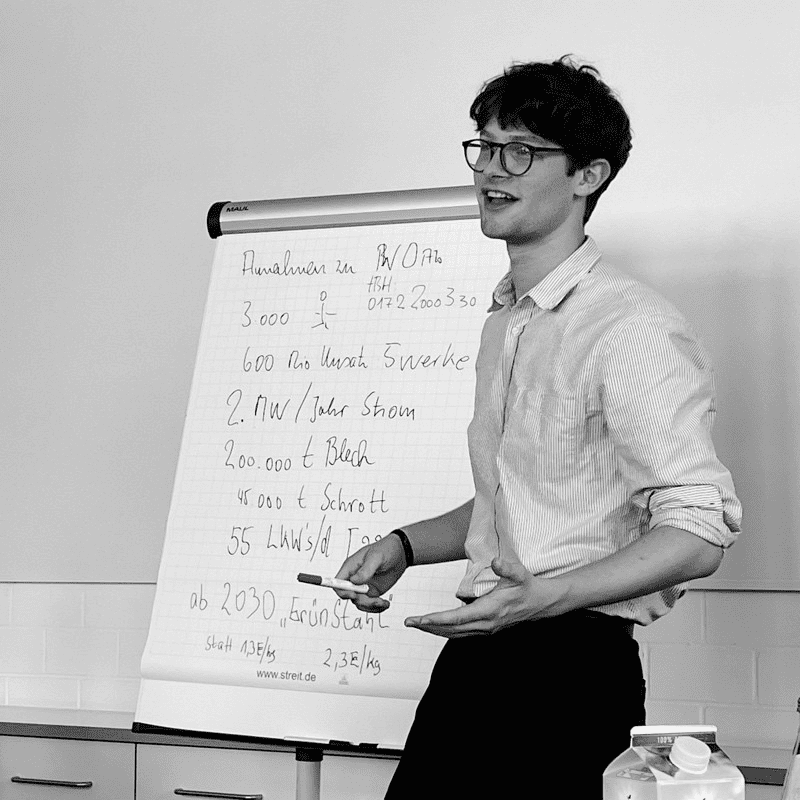 MAUL
Annahmen zu
HBH
0172 2000330
3 000
600 Mio Umsatz 5 Werke
2. MW / Jahr Strom
200.000 t Blech
45 000 t Schrott
55 LKW's/d
ab 2030 „GrünStahl"
statt 1,3€/kg 2,3€/kg
www.streit.de
100%